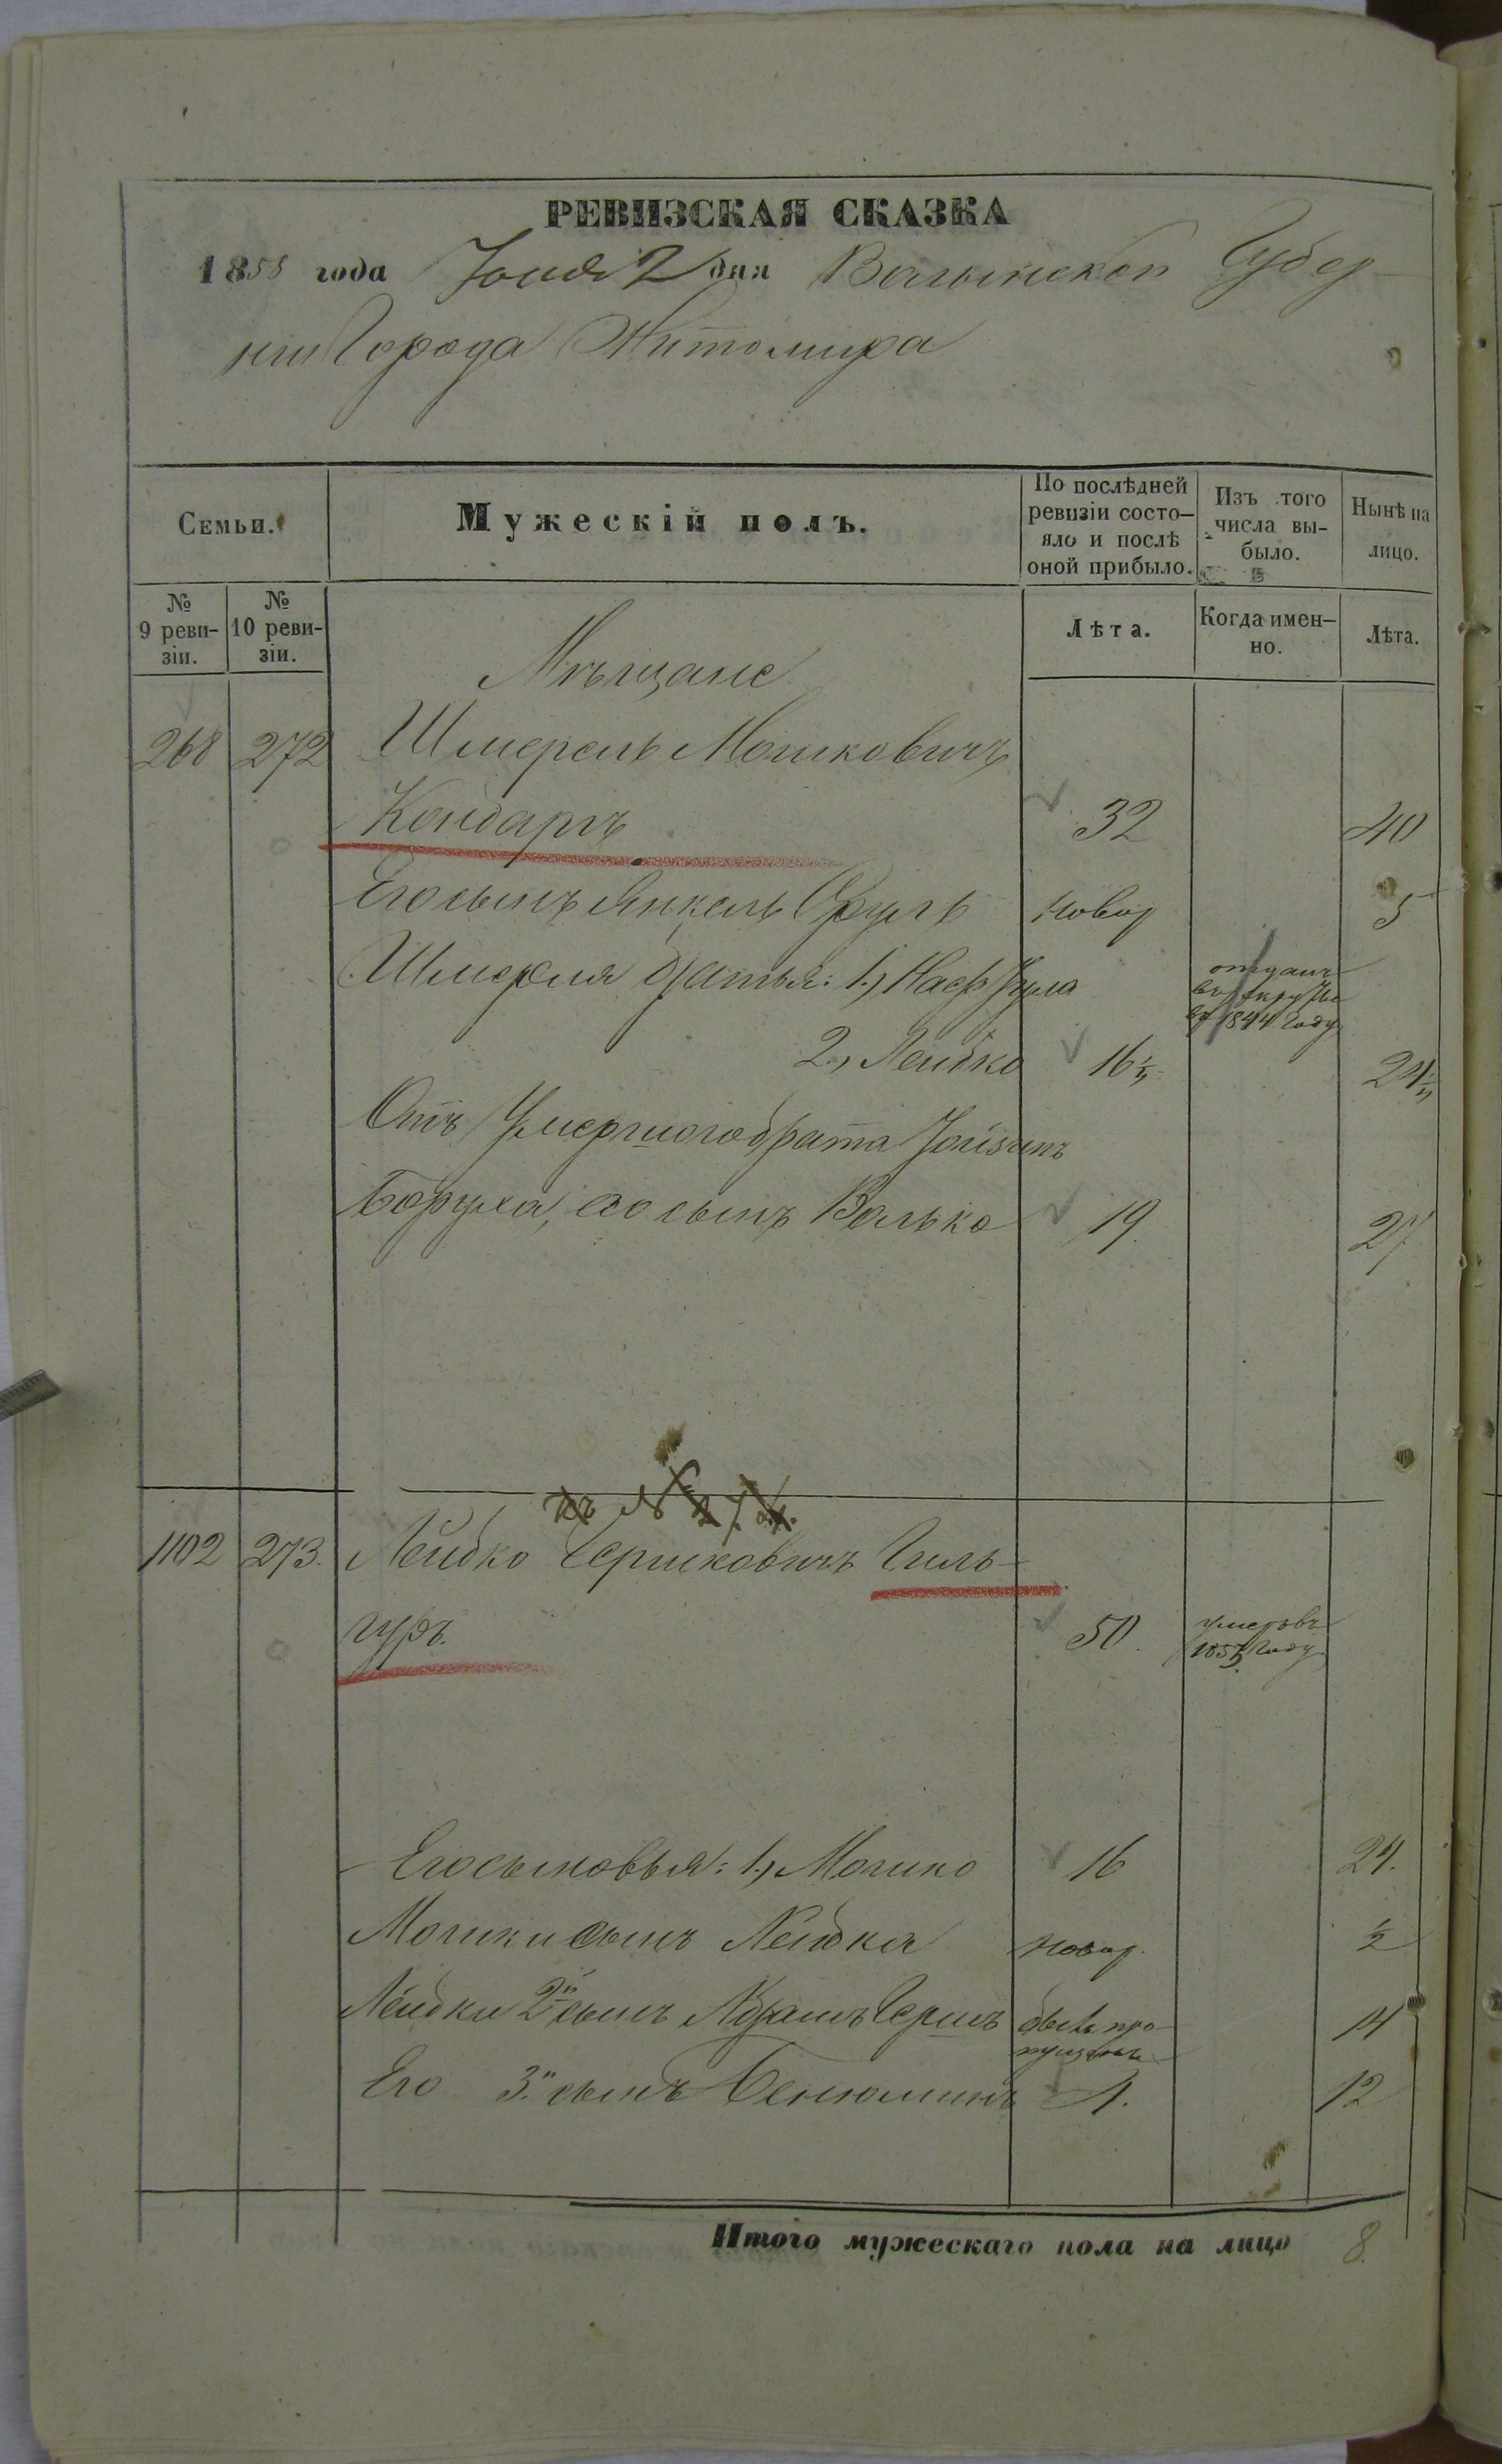 РЕВИЗСКАЯ СКАЗКА
1858 года Іюня 2 дня Волынской Губер-
ніи Города Житомира
Семьи.
Мужескій полъ.
По послѣдней ревизіи состо-
яло и послѣ
оной прибыло.
Изъ того
числа вы-
было.
Нынѣ на
лицо.
№
9 реви-
зіи.
№
10 реви-
зіи.
Лѣта.
Когда имен-
но.
Лѣта.
Мѣщане
268 272 Шмерель Мошковичъ
Кондаръ 32 40
Его сынъ Янкель Сруль новор 5
Шмереля братья: 1, Нафтула отданъ
въ рекруты
въ 1844 году
2, Лейбко 16½ 24½
Отъ Умершого брата
Боруха, его сынъ Волько 19. 27
къ № 274.
1102 273. Лейбко Гершковичъ Гиль-
гуръ. 50. умеръ въ
1855 году
Его сыновья: 1, Мошко 16 24.
Мошки сынъ Лейбка новор. ½
Лейбки 2й сынъ Абрамъ Гершъ былъ про-
пущенъ 14
Его 3й сынъ Бенюминъ 4. 12
Итого мужескаго пола на лицо 8.